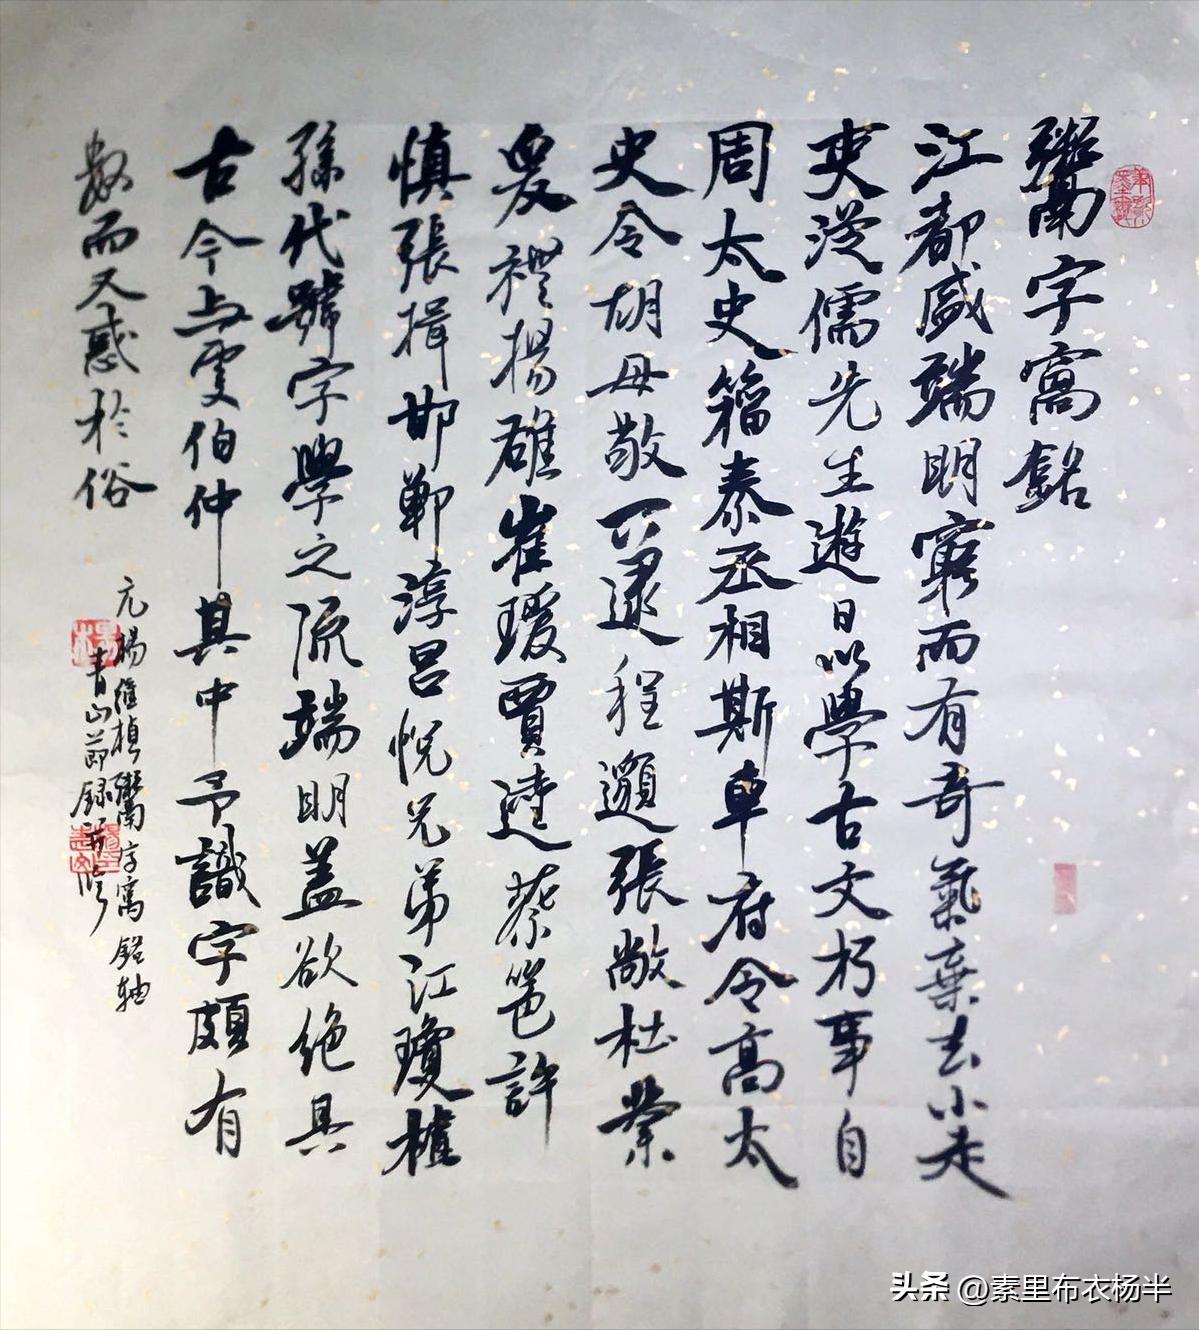 鬻字窩銘
江都盛端明窮而有奇氣棄去小走
吏從儒先生遊日以學古文朽事自
周太史籀秦丞相斯車府令高太
史令胡母敬下逮程邈張敞杜業
爰禮揚雄崔瑗賈逵蔡邕許
慎張揖邯鄲淳呂悅兄弟江瓊
孫代號字學之流端明蓋欲絕具
古今与雯伯仲其中予識字頗有
數而又惑於俗
元楊維楨鬻字窩銘軸
青山節録
头条 @素里布衣杨半